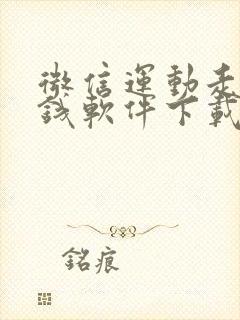 微信運動走
錢軟件下載
銘痕